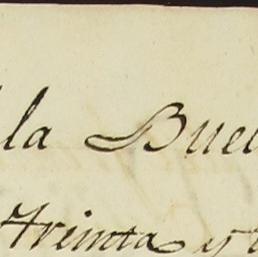 la Buel
Treinta y